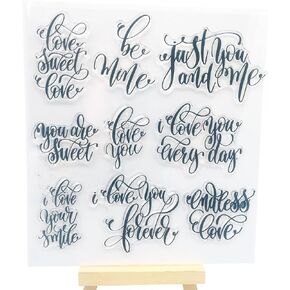 love
sweet
love
be
mine
just you
and me
you are
sweet
love
you
i love you
every day
i love
your
smile
i love you
forever
endless
love